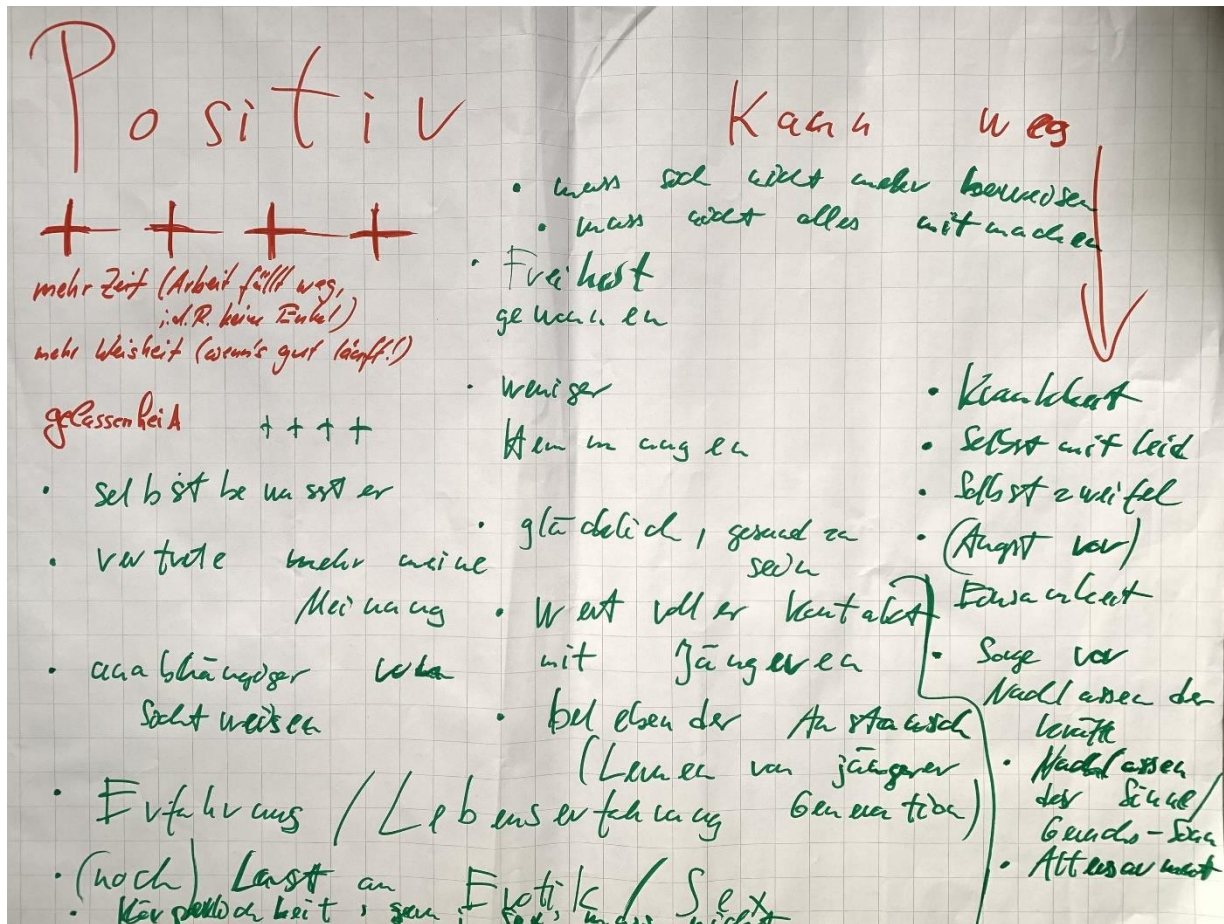 Positiv
++++
mehr Zeit (Arbeit fällt weg,
i.d.R. keine Enkel)
mehr Weisheit (wenn's gut läuft!)
gelassenheit
++++
• selbstbewusster
• vertrete mehr meine
Meinung
• unabhängiger von
Sichtweisen
• Erfahrung / Lebenserfahrung
• (noch) Lust an Erotik / Sex
• Körperlichkeit,
• muss sich nicht mehr beweisen
• muss nicht alles mitmachen
• Freiheit
gewonnen
• weniger
Hemmungen
• glücklich, gesund zu
sein
• wertvoller Kontakt
mit Jüngeren
• belebender Austausch
(Lernen von jüngerer
Generation)
Kann weg
• Krankheit
• Selbstmitleid
• Selbstzweifel
• (Angst vor)
Einsamkeit
• Sorge vor
Nachlassen der
Kräfte
• Nachlassen
der Sinne
Geruchs-Sinn
• Altersarmut